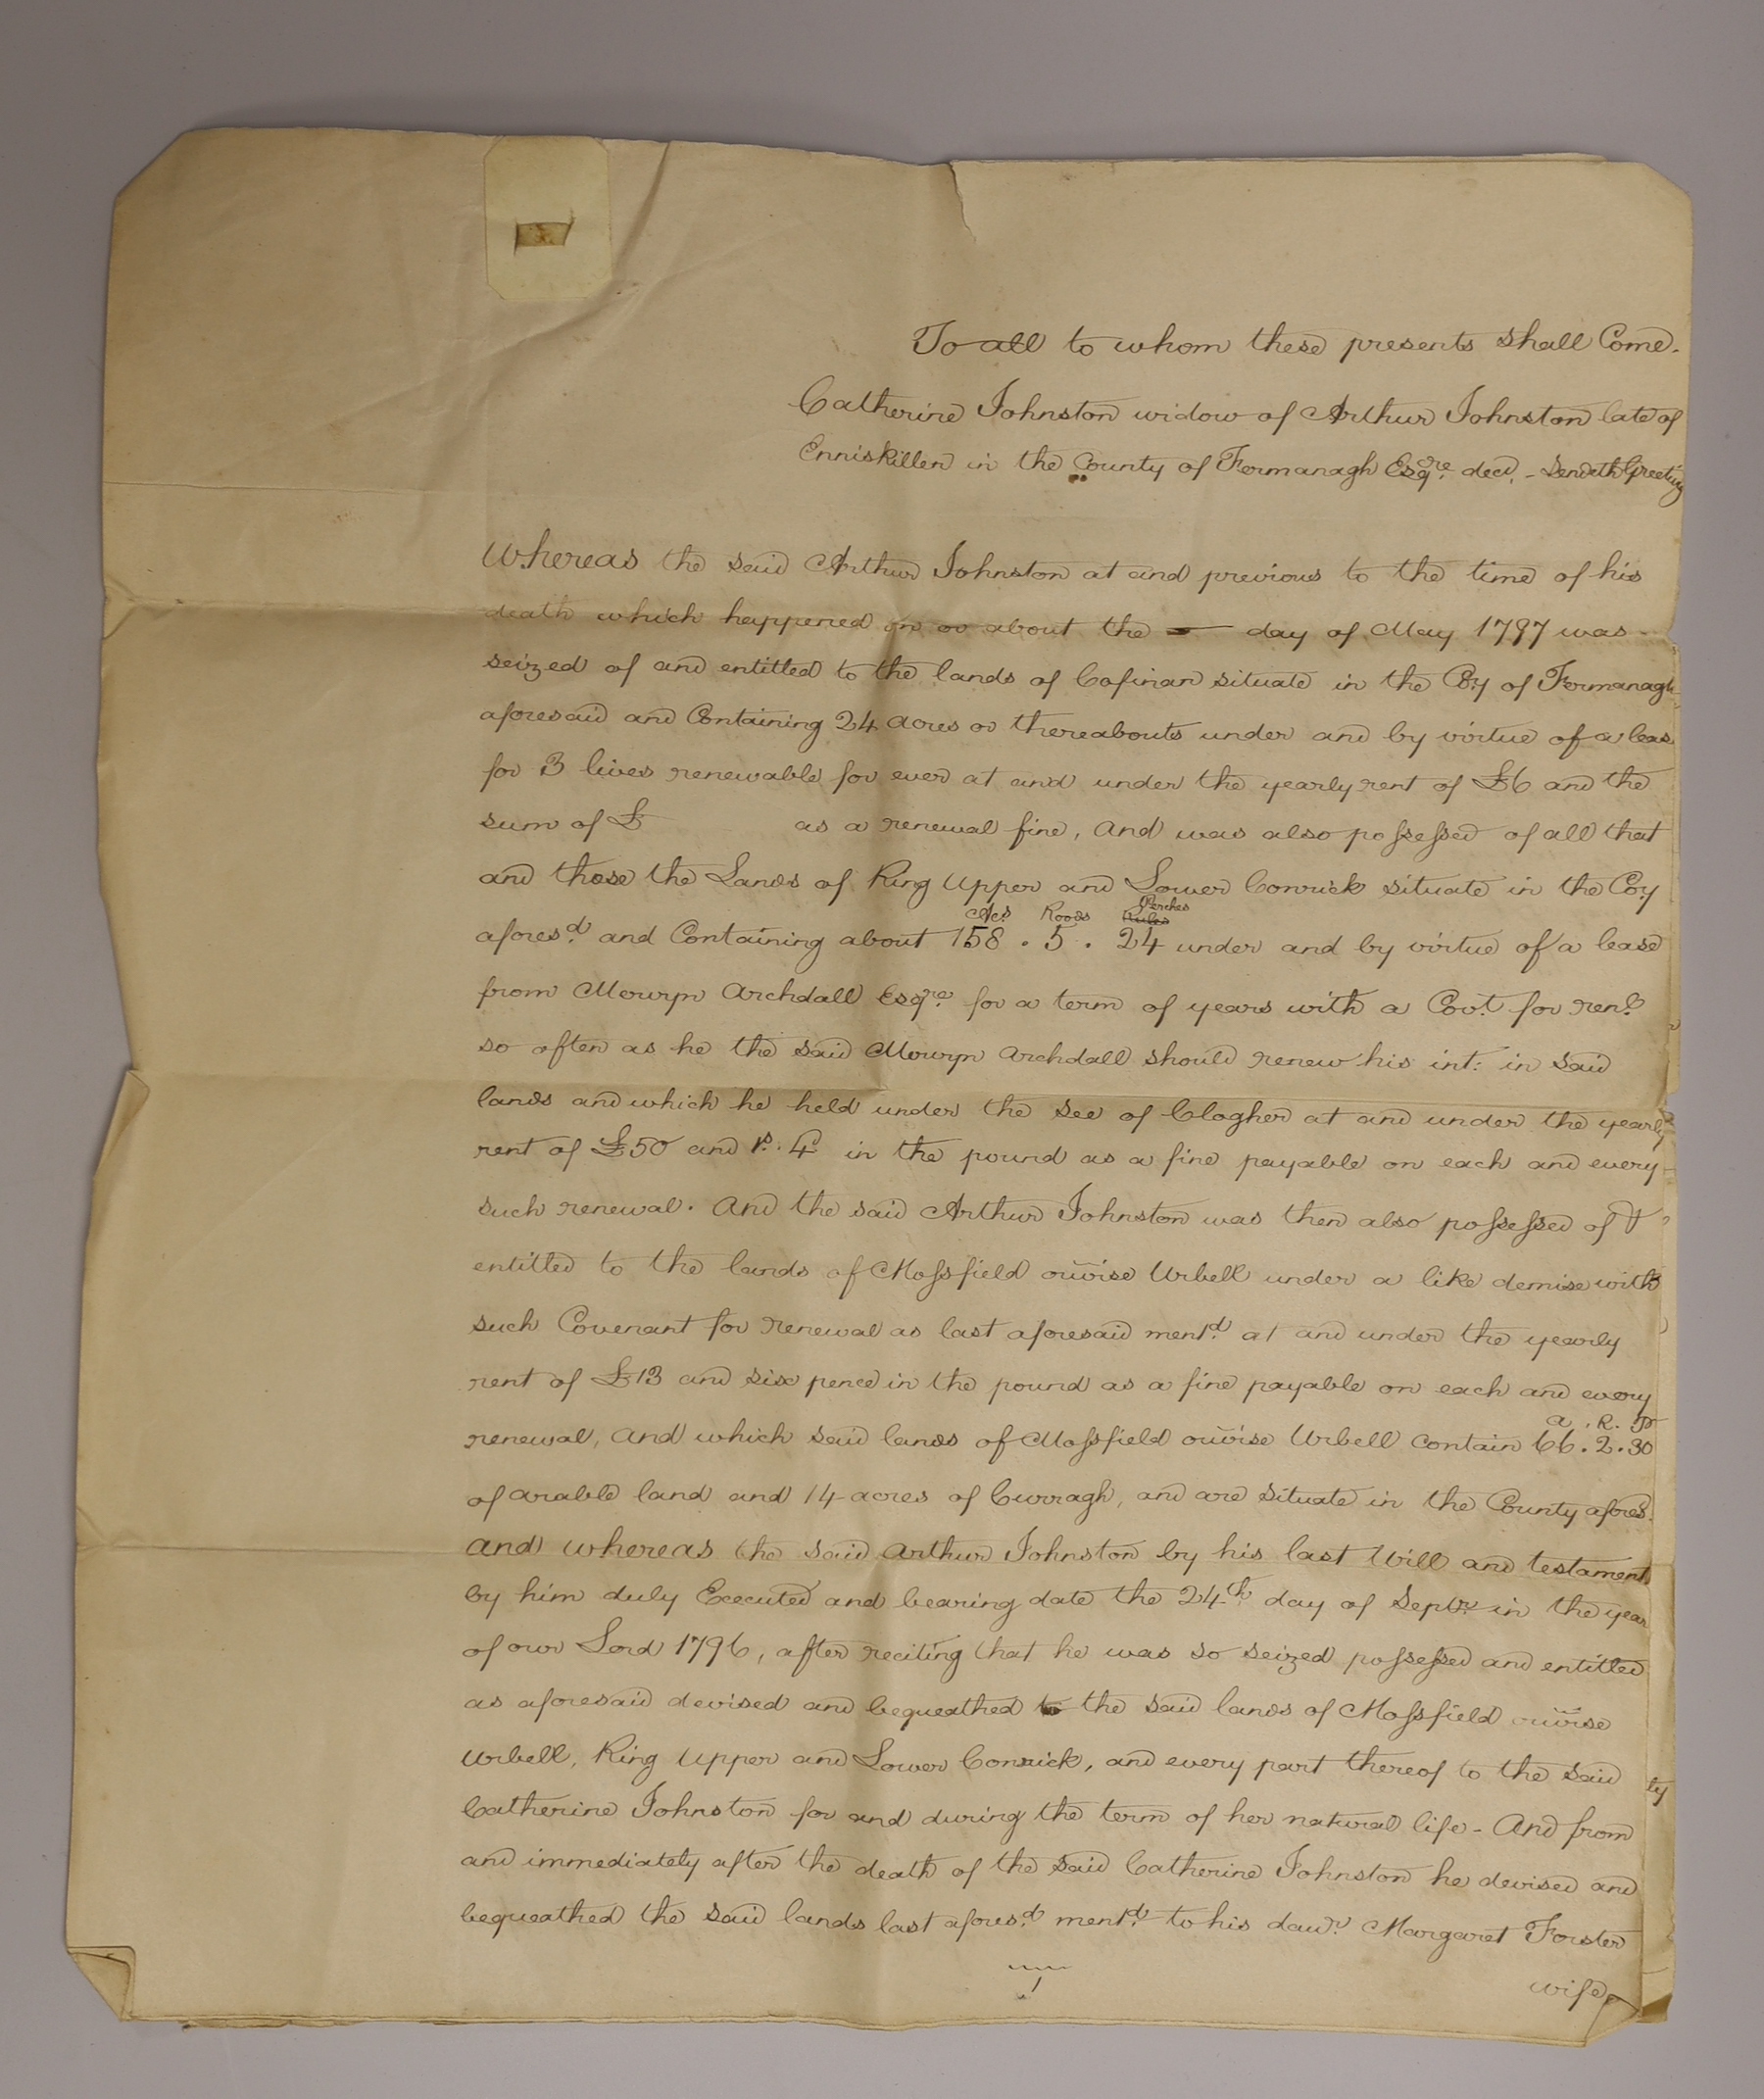 To all to whom these presents shall Come.
Catherine Johnston widow of Arthur Johnston late of
Enniskillen in the County of Fermanagh Esqre. decd. - Sendeth Greeting
Whereas the said Arthur Johnston at and previous to the time of his
death which happened on or about the — day of May 1797 was
seized of and entitled to the lands of Cofinan situate in the Coy of Fermanagh
aforesaid and Containing 24 acres or thereabouts under and by virtue of a leas
for 3 lives renewable for ever at and under the yearly rent of £6 and the
sum of £ as a renewal fine, And was also possessed of all that
and those the Lands of Ring Upper and Lower Conrick situate in the Coy
Acs Roods Perches
aforesd. and Containing about 158 . 5 . 24 under and by virtue of a lease
from Mervyn Archdall Esqre for a term of years with a Covt. for renl.
so often as he the said Mervyn Archdall should renew his int: in said
lands and which he held under the See of Clogher at and under the yearly
rent of £50 and 1s. 4 in the pound as a fine payable on each and every
such renewal. And the said Arthur Johnston was then also possessed of &
entitled to the lands of Mossfield orwise Urbell under a like demise with
such Covenant for renewal as last aforesaid mentd. at and under the yearly
rent of £13 and six pence in the pound as a fine payable on each and every
a . R. P
renewal, And which said lands of Mossfield orwise Urbell contain 66 . 2 . 30
of arable land and 14 acres of Curragh, and are situate in the County afores.
And whereas the said Arthur Johnston by his last Will and testament
by him duly Executed and bearing date the 24th day of Septr. in the year
of our Lord 1796, after reciting that he was so seized possessed and entitled
as aforesaid devised and bequeathed the said lands of Mossfield orwise
Urbell, Ring Upper and Lower Conrick, and every part thereof to the said
Catherine Johnston for and during the term of her natural life - And from
and immediately after the death of the said Catherine Johnston he devised and
bequeathed the said lands last aforesd. mentd. to his daur. Margaret Forster
wife
1
ty